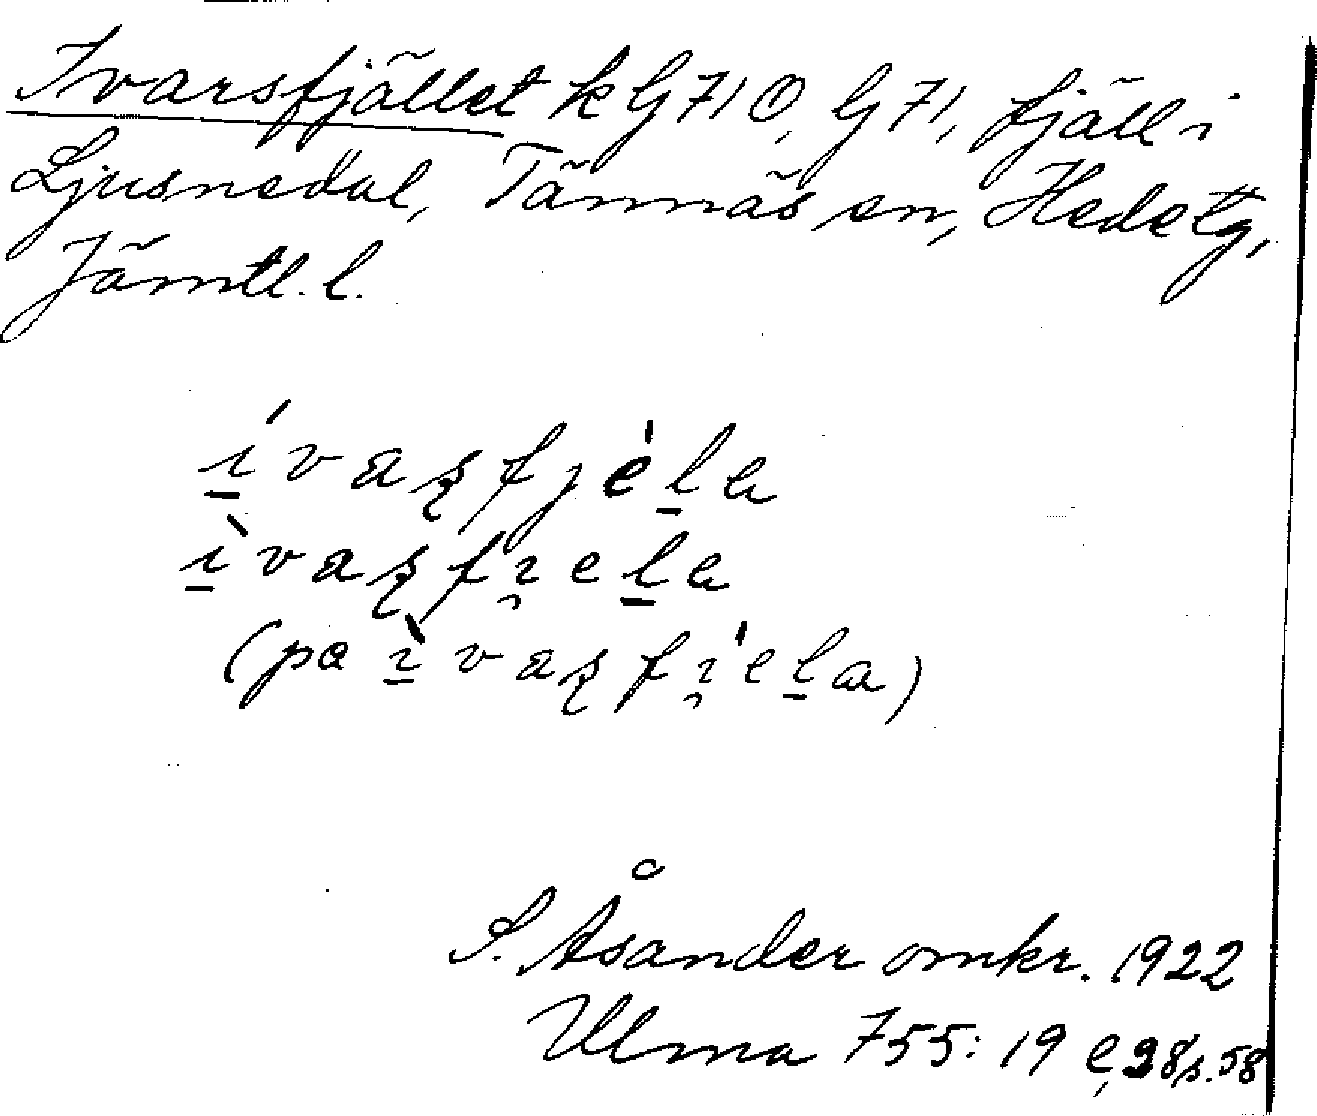 Ivarsfjället k G 71 O, G 71, fjäll i
Ljusnedal, Tännäs sn, Hede tg,
Jämtl. l.
ívaʂfjèla
ìvaʂfi̯ela
(pa ìvaʂfi̯ela)
S. Åsander omkr. 1922
Ulma 755: 19 e, 28 s. 58